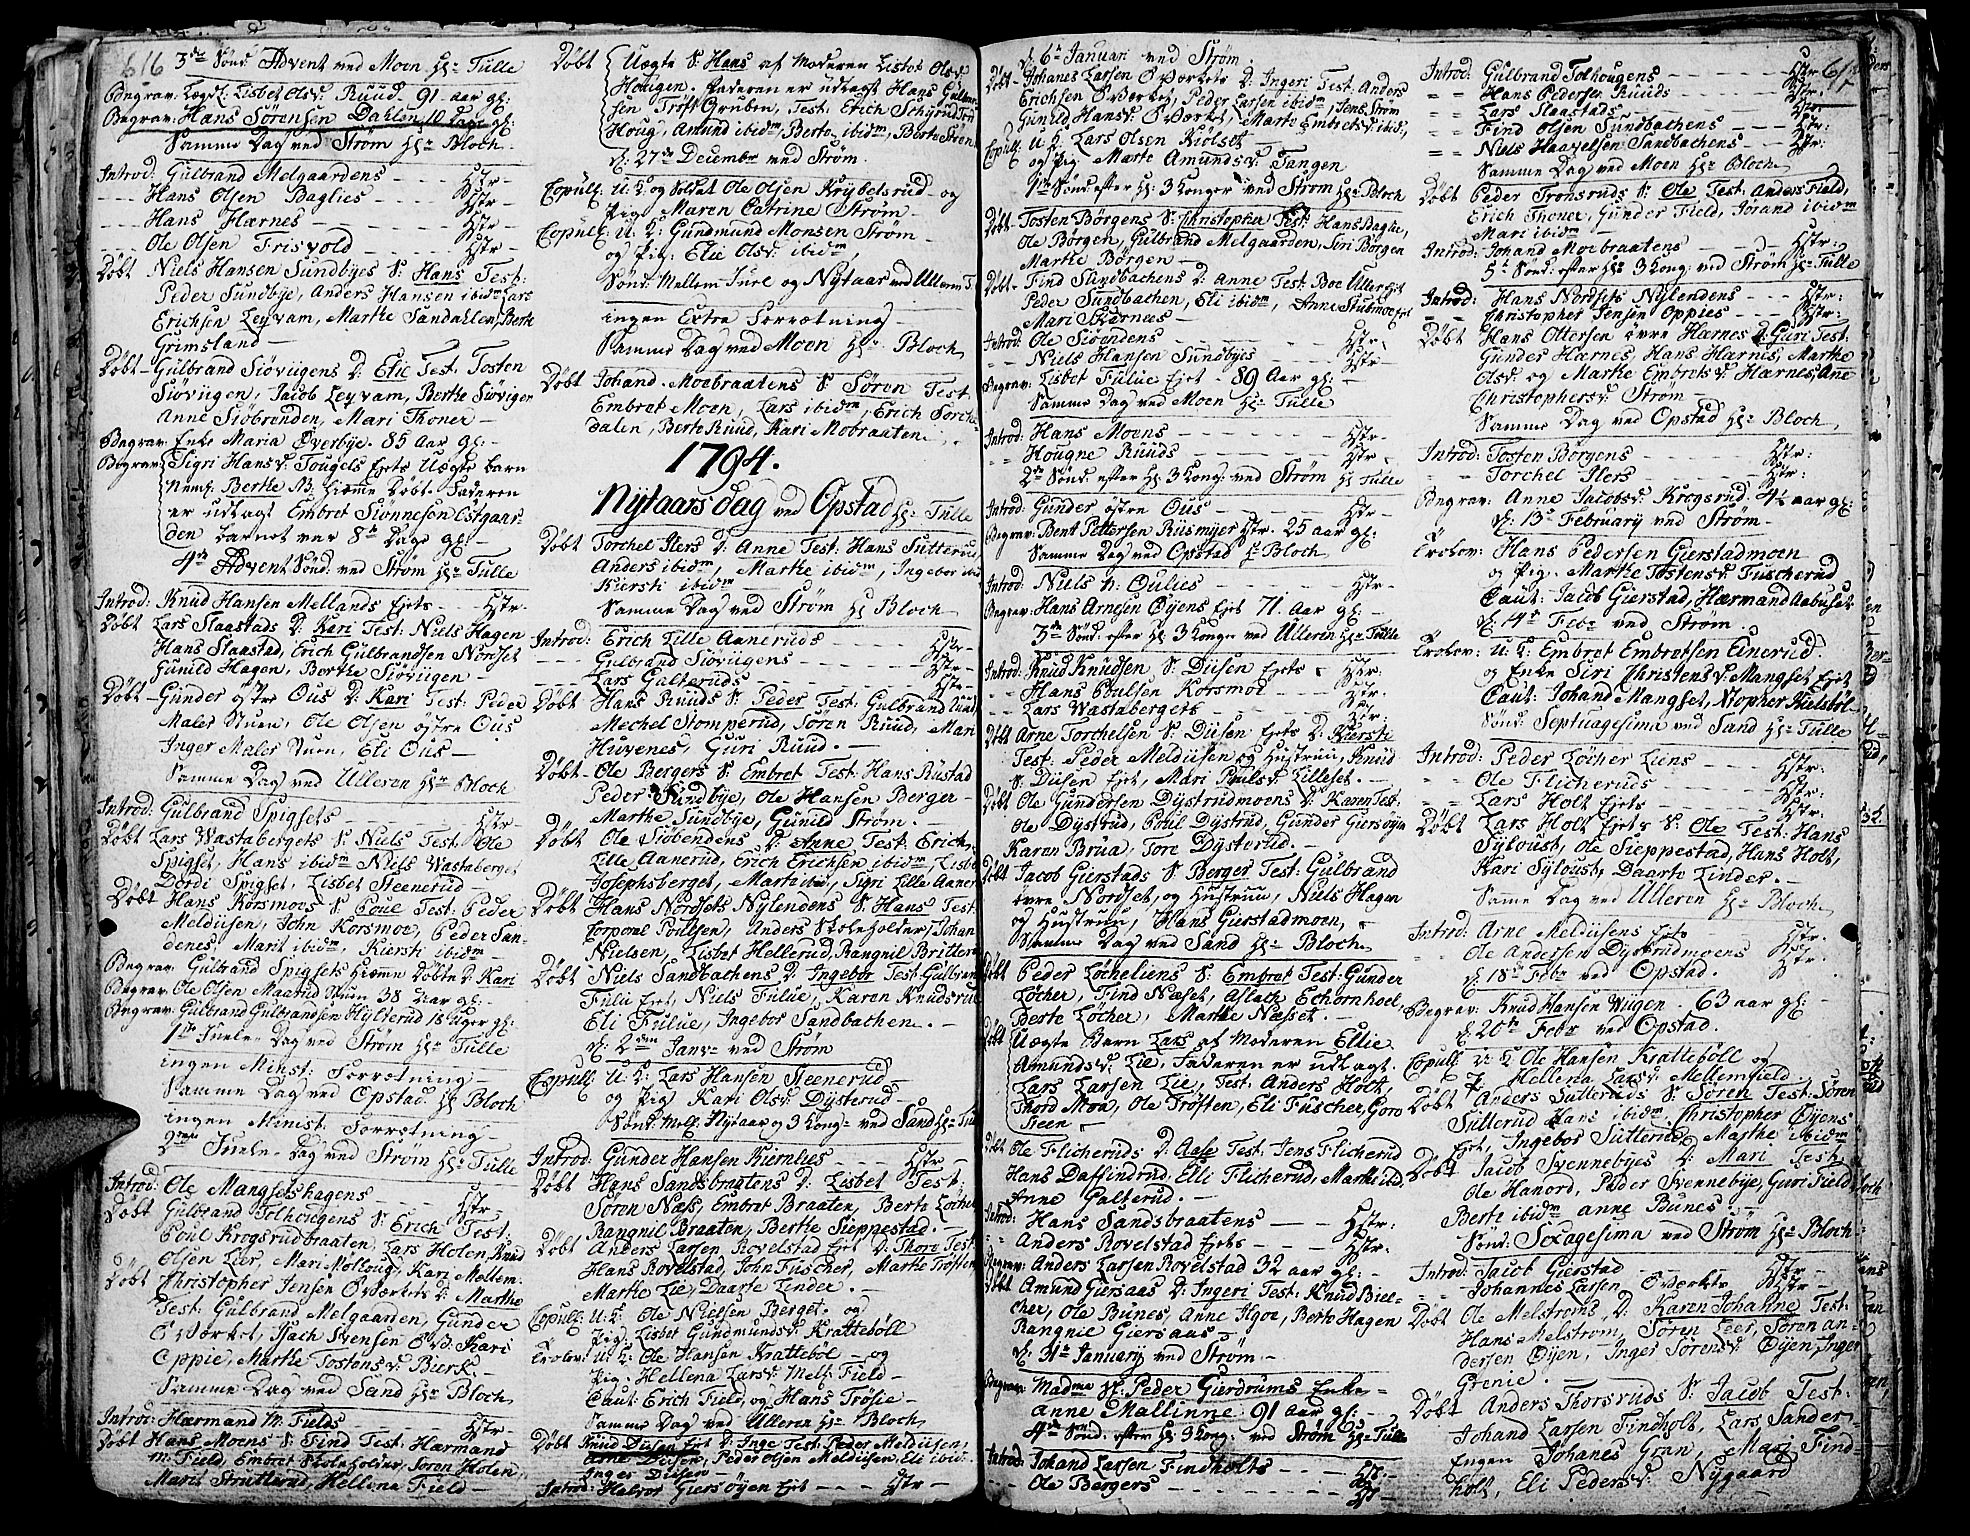 616
3de Sönd: Advent ved Moen Hr: Tülle
Begrav: Logsl: Lisbet Olsd: Ruud - 91 - aar gl:
Begrav: Hans Sörensen Dahlen, 10 Dage gl:
Samme Dag ved Ström Hr: Bloch
Introd: Gülbrand Melgaardens - - - - Hstr -
- - - Hans Olsen Baglies - - - - Hstr -
- - - Hans Hærnes - - - - Hstr -
- - - Ole Olsen Frisvold - - - - Hstr -
Döbt Niels Hansen Sundbyes S: Hans Test:
Peder Sundbye, Anders Hansen ibidm Lars
Erichsen Leyvam, Marthe Sandahlen, Berte
Grimsland -
Döbt - Gülbrand Siövügens D: Elie Test: Tosten
Siövügen, Jacob Leyvam, Berthe Siövigen
Anne Siöbrenden, Mari Thoner -
Begrav: Enke Maria Overbye. 85 Aar gl: -
Begrav: Sigri Hansd: Tougels Ejets Uægte barn
Nemf: Berthe NB. hiemme Döbt. Faderen
er udlagt Embret Siönnesen Estgaar-
den barnet var 8te Dage gl: -
4de Advent Sönd: ved Ström Hr: Tülle
Introd: Knud Hansen Mellands Ejets - - Hstr -
Döbt Lars Slaastads D: Kari Test: Niels Hagen
Hans Slaastad, Erich Gülbrandsen Nordset
Gunild Hagen, Berthe Siövügen -
Döbt - Gunder östre Ous D: Kari Test: Peder
Maler Stuen, Ole Olsen östre Ous
Inger Maler Stuen, Eli Ous -
Samme Dag ved Ulleren Hr: Bloch
Introd: Gulbrand Spigsets - - - - Hstr -
Döbt Lars Wastabergets S: Niels Test: Ole
Spigset, Hans ibidm Niels Wastaberget
Dordi Spigset, Lisbet Steenerud -
Döbt Hans Korsmoes S: Poul Test: Peder
Meldüsen, John Korsmoe, Peder San-
denes, Marit ibidm, Kiersti ibidm -
Begrav: Gülbrand Spigsets hiemme Döbte D: Kari
Begrav: Ole Olsen Maarud Stuen 38 Aar gl: -
Begrav: Gülbrand Gülbrandsen Hylterud 18 Uger gl:
1ste Juele-Dag ved Ström Hr: Tülle
ingen Minist: Forrætning -
Samme Dag ved Opstad Hr: Bloch
ingen Minist: Forrætning -
2den Juele-Dag ved Ström Hr: Tülle
Introd: Ole Mangsetshagens - - - Hstr -
Döbt Gülbrand Tolhougens S: Erich Test:
Poul Krogsrudbraaten, Lars Holen, Knud
Olsen Leer, Mari Möllaug, Kari Mellem
Döbt Christopher Jensen Oværkets D: Marthe
Test: Gülbrand Melgaarden, Gunder
Oværket, Isach Svensen OVB: Kari
Oppie, Marthe Tostensd: Bierk -
Samme Dag ved Sand Hr: Bloch
Introd: Hærmand M: Fields - - - Hstr -
Döbt Hans Moens S: Find Test: Hærmand
M: Field, Embret Skoleholder, Sören Holen,
Marit Struterud, Hellena Field -

Döbt Uægte S: Hans af Moderen Lisbet Olsd:
Hougen. Faderen er udlagt Hans Gülbran
sen Tröft Gruben, Test: Erich Schyrud Ton
Houg, Amund ibidm, Berte ibidm, Berte Stoen
d: 27de Decembr: ved Ström.
Copull: U: K: og Soldat Ole Olsen Krybelsrud og
Pig: Maren Catrine Ström -
Copull: U: K: Gundmund Monsen Ström -
og Pig: Elie Olsd: ibidm,
Sönd: Mellem Juel og Nytaar ved Ulleren T
ingen Extra Forrætning -
Samme Dag ved Moen Hr: Bloch
Döbt Johand Moebraatens S: Sören Test:
Embret Moen, Lars ibidm, Erich Torche
dalen, Berte Ruud, Kari Mobraaten
1794.
Nytaarsdag ved Opstad Hr: Tülle
Döbt Torchel Ilers D: Anne Test: Hans Sutterud
Anders ibidm, Marthe ibidm, Ingebor ibid
Kiersti ibidm -
Samme Dag ved Ström Hr: Bloch
Introd: Erich Lille Aaneruds - - Hstr -
- - - Gulbrand Siövügens - - - Hstr -
- - - Lars Galteruds - - - Hstr -
Döbt Hans Ruuds S: Peder Test: Gulbrand Ruud
Mechel Stomperud, Sören Ruud, Mari
Huvenes, Guri Ruud. -
Döbt - Ole Bergers S: Embret Test: Hans Rustad
Peder Sundbye, Ole Hansen Berger -
Marthe Sundbye, Gunild Ström -
Döbt Ole Siöbendens D: Anne Test: Erich
Lille Aanerud, Erich Erichsen ibidm, Lisbe
Josephsberget, Marte ibid, Sigri Lille Aaner
Döbt Hans Nordsets Nylendens S: Hans Test:
Torpoul Poulsen, Anders Skoleholter, Johan
Nielsen, Lisbet Hellerud, Rangnil Britteru
Döbt Niels Sandbachens D: Ingebor Test: Gülbrand
Fulu Ejet, Niels Fulue, Karen Knudsrud
Eli Fulue, Ingebor Sandbachen. -
d: 2den Janv: ved Ström
Copull: U: K: Lars Hansen Steenerud -
og Pig: Kari Olsd: Dysterud -
Sönd: Mell: Nytaar og 3 Kong: ved Sand Hr: Tül
Introd: Gunder Hansen Kiernlies - - - Hstr -
Döbt Hans Sandsbraatens D: Lisbet Test:
Sören Næss, Embret Braaten, Berte Löcher
Rangnil Braaten, Berthe Sieppestad. -
Döbt Anders Larsen Rovelstad Ejet D: Thore Test:
Hans Rovelstad, John Fuscher, Marthe Tröften
Marthe Lie, Daarte Linder. -
Copull: U: K: Ole Nielsen Berget og
Pig: Lisbet Gundmundsd: Krattebøll
Trolov: U: K: Ole Hansen Krattebøl - og
Pig: Hellena Larsd: Melf: Field -
Caut: Erich Field, og Hans Trösie -
Samme Dag ved Ulleren Hr: Bloch
Döbt Knud Diisen Ejet D: Inge Test: Peder Meldüsen,
Arne Diisen, Peder Olsen Meldüsen, Eli ibid:
Inges Diisen -
Introd: Halvor Giersöyen Ejet - - Hstr -

d: 6te Januari ved Ström.
Döbt - Johanes Larsen Oværkets D: Ingeri Test: Anders
Erichsen Oværket, Peder Larsen ibidm, Jens Ström
Gunild Hansd: Oværket, Marte Embretsd: ibid,
Copul: U: K: Lars Olsen Kiölset
og Pig: Marte Amundsd: Tangen
1ste Sönd: efter Hl: 3 Konger ved Ström Hr: Bloch
Döbt - Tosten Börgens S: Christopher Test: Hans Baglie,
Ole Börgen, Gülbrand Melgaarden, Siri Börgen
Marthe Börgen -
Döbt - Find Sandbachens D: Anne Test: Boe Ullerset
Peder Sundbachen, Eli ibidm, Anne Stubmoeset
Mari Skærnes -
Introd: Ole Siörendens - - - Hstr -
- - Niels Hansen Sundbyes - - - Hstr -
Begrav: Lisbet Fulue Ejet - 89 Aar gl: -
Samme Dag ved Moen Hr: Tülle
Introd: Hans Moens - - - - Hstr -
- - Hougne Ruuds - - - - Hstr -
2de Sönd: efter Hl: 3 Kong: ved Ström Hr: Tülle
Introd: Gunder östre Ous - - - Hstr -
Begrav: Bent Pettersen Riismyer Hstr: 25 aar gl:
Samme Dag ved Opstad Hr: Bloch
Introd: Niels N: Oulies - - - - Hstr -
Begrav: Hans Arnesen Öyens Ejet 71. Aar gl: -
3de Sönd: efter Hl: 3 Konger ved Ulleren Hr: Tülle
Introd: Knud Knudsen S: Diisen Ejets - Hstr:
- - Hans Poulsen Korsmoe - - - Hstr:
- - Lars Wastabergets - - - - Hstr:
Döbt Arne Torchelsen S: Diisen Ejets D: Kiersti
Test: Peder Meldüsen og Hustruü, Knud
S: Diisen Ejet, Mari Paulsd: Lilleset. -
Döbt Ole Gundersen Dystrudmoens D: Karen Test:
Ole Dystrud, Poul Dystrud, Gunder Giersöyen
Karen Brua, Tore Dysterud. -
Döbt Jacob Gierstads S: Berger Test: Gülbrand
övre Nordset, og Hustruü, Niels Hagen
og Hustruü, Hans Gierstadmoen, -
Samme Dag ved Sand Hr: Bloch
Döbt Peder Löcheliens S: Embret Test: Gunder
Löcher, Find Næset, Aslach Echornhoel,
Berte Löcher, Marthe Næsset. -
Döbt Uægte Barn Lars af Moderen Ellie
Amundsd: Lie, Faderen er udlagt.
Lars Larsen Lie, Test: Anders Holt,
Thord Moe, Ole Tröften, Eli Fuscher, Goro
Steen -
Döbt Ole Flicheruds D: Aase Test: Jens Flicherud
Hans Daffindrud, Elli Flicherud, Marthe ibid.
Anne Galterud. -
Introd: Hans Sandsbraatens - - - Hstr:
- - Anders Rovelstad Ejets - - - Hstr:
Begrav: Anders Larsen Rovelstad 32 aar gl: -
Döbt Amund Giersaas D: Ingeri Test: Knud Biel-
cher, Ole Bunes, Anne Ilgoe, Berte Hagen
Rangnie Giersaas -
d: 31te January ved Ström -
Begrav: Madme Sl: Peder Gierdrums Enke -
Anne Mallinne 91 aar gl: -
4de Sönd: efter Hl: 3 Kong: ved Ström Hr: Tülle
Introd: Johand Larsen Findholts - - - Hstr -
- - Ole Bergers - - - - Hstr -

617
Introd: Gulbrand Tolhougens - - - - Hstr -
- - Hans Pedersen Ruuds - - - - Hstr -
- - Lars Slaastads - - - - Hstr -
- - Find Olsen Sundbachens - - - Hstr:
- - Niels Haavelsen Sandbachens - - Hstr:
Samme Dag ved Moen Hr: Bloch
Döbt Peder Tronsruds S: Ole Test: Anders Field,
Erich Thoner, Gunder Field, Jörand ibidm
Mari ibidm -
Introd: Johand Moebraatens - - - Hstr:
5te Sönd: efter Hl: 3 Kong: ved Ström Hr: Tülle
Introd: Hans Nordsets Nylendens - - - Hstr:
- - Christopher Jensen Oppies - - - Hstr:
Döbt Hans Ottersen övre Hærnes D: Guri Test:
Gunder Hærnes, Hans Hærnes, Marthe
Olsd: og Marthe Embretsd: Hærnes, Ane
Christophersd: Ström -
Samme Dag ved Opstad Hr: Bloch
Introd: Tosten Börgens - - - - Hstr:
- - Torchel Ilers - - - - Hstr:
Begrav: Anne Jacobsd: Krogsrud. 4½ aar gl:
d: 13de February ved Ström -
Trolov: Hans Pedersen Gierstadmoen
og Pig: Marthe Tostensd: Fuscherud
Caut: Jacob Gierstad, Hærmand Aabuset
d: 14de Febr: ved Ström.
Trolov: U: K: Embret Embretsen Einerud
og Enke Siri Christensd: Mangset Ejet
Caut: Johand Mangset, Xtopher Hielstöl-
Sönd: Septuagesima ved Sand Hr: Tülle
Introd: Peder Löcher Liens - - - Hstr:
- - Ole Flicheruds - - - Hstr:
- - Lars Holt Ejets - - - Hstr:
Döbt Lars Holt Ejets S: Ole Test: Hans
Syloust, Ole Sieppestad, Hans Holt,
Kari Syloust, Daarte Linder. -
Same Dag ved Ulleren Hr: Bloch
Introd: Arne Meldüsens Ejets - - Hstr:
- - Ole Andersen Dystrudmoens - - Hstr:
d: 18de Febr: ved Opstad.
Begrav: Knud Hansen Waugen. 63 aar gl: -
d: 20de Febr: ved Opstad.
Copull: U: K: Ole Hansen Krattebøll og
P: Hellena Larsd: Mellemfield
Döbt Anders Sutteruds S: Sören Test: Sören
Sutterud Hans ibidm, Christopher Öyens
Ejet, Ingebor Sutterud, Marthe ibidm
Döbt Jacob Svennebyes D: Mari Test:
Ole Hanord, Peder Svennebye, Guri Field
Berte ibidm Anne Bunes -
Sönd: Sexagesima ved Ström Hr: Bloch
Introd: Jacob Gierstad - - - Hstr -
- - Johannes Larsen Oværkets - - Hstr -
Döbt Ole Melströms D: Karen Johanne Test:
Hans Melström, Sören Leer, Sören An-
dersen Öyen, Inger Sörensd: Öyen, Inger
Grenie. -
Döbt Anders Thorsruds S: Jacob Test:
Johand Larsen Findholt, Lars Sander
Engen Johanes Gran, Mari Find
holt, Eli Pedersd: Nygaard